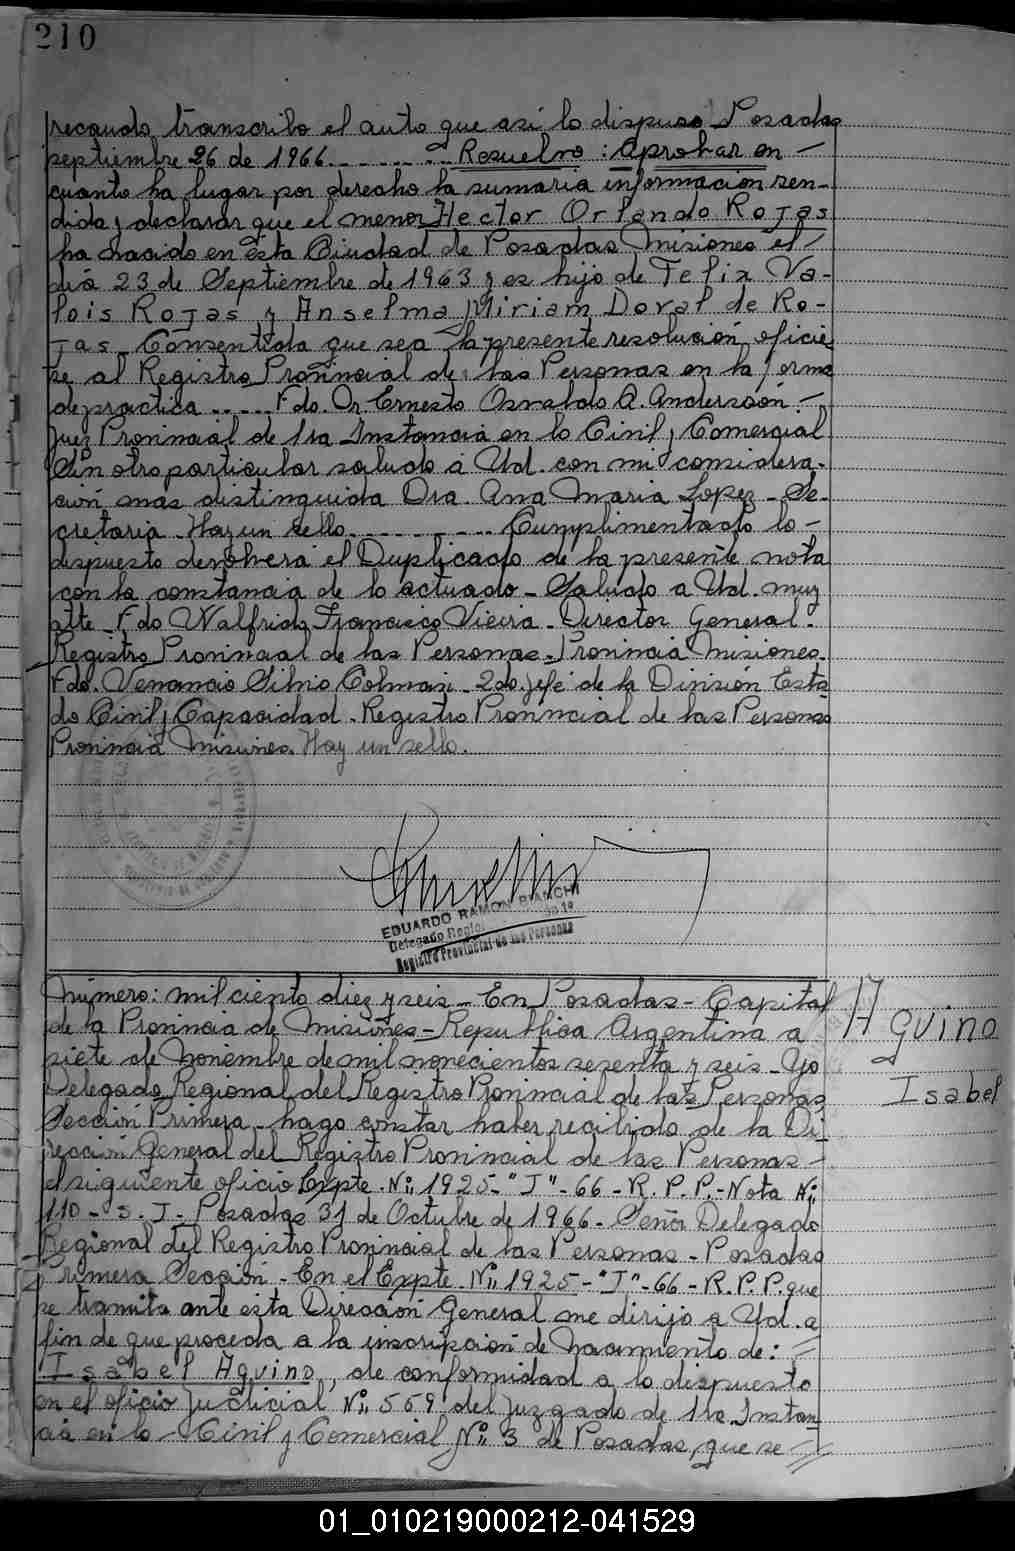 210
recaudo, transcribo el auto que asi lo dispuso Posadas
septiembre 26 de 1966 ......... Resuelvo : Aprobar en -
cuanto ha lugar por derecho la sumaria informacion ren-
dida y declarar que el menor Hector Orlando Rojas
ha nacido en esta Ciudad de Posadas Misiones el -
dia 23 de Septiembre de 1963 y es hijo de Felix Va-
lois Rojas y Anselma Miriam Doval de Ro-
jas - Consentida que sea la presente resolución oficie
se al Registro Provincial de las Personas en la forma
de practica ..... Fdo. Dr. Ernesto Osvaldo A. Anderson. -
Juez Provincial de 1ra Instancia en lo Civil y Comercial
Sin otro particular saludo a Ud. con mi considera-
ción mas distinguida Dra. Ana Maria Lopez - Se-
cretaria. Hay un sello ............ Cumplimentado lo -
dispuesto devolvera el Duplicado de la presente nota
con la constancia de lo actuado - Saludo a Ud. muy
atte - Fdo Walfrido Francisco Vieira - Director General -
Registro Provincial de las Personas - Provincia Misiones.
Fdo. Venancio Silvio Colman - 2do. jefe de la División Esta
do Civil y Capacidad - Registro Provincial de las Personas
Provincia Misiones. Hay un sello.
EDUARDO RAMON BIANCHI
Delegado Regional
Registro Provincial de las Personas
Número: mil ciento diez y seis - En Posadas - Capital
de la Provincia de Misiones - Republica Argentina a
siete de Noviembre de mil novecientos sesenta y seis - Yo
Delegado Regional del Registro Provincial de las Personas
Sección Primera - hago constar haber recibido de la Di-
rección General del Registro Provincial de las Personas -
el siguiente oficio Expte. Nº 1925 - "J" - 66 - R. P. P. - Nota Nº
110 - S. J - Posadas 31 de Octubre de 1966 - Señor Delegado
Regional del Registro Provincial de las Personas - Posadas
Primera Sección - En el Expte. Nº 1925 - "J" - 66 - R. P. P. que
se tramita ante esta Dirección General me dirijo a Ud. a
fin de que proceda a la inscripción de Nacimiento de: =
Isabel Aquino, de conformidad a lo dispuesto
en el oficio Judicial Nº 559 del Juzgado de 1ra Instan
cia en lo - Civil y Comercial Nº 3 de Posadas, que se
Aquino
Isabel
01_010219000212-041529